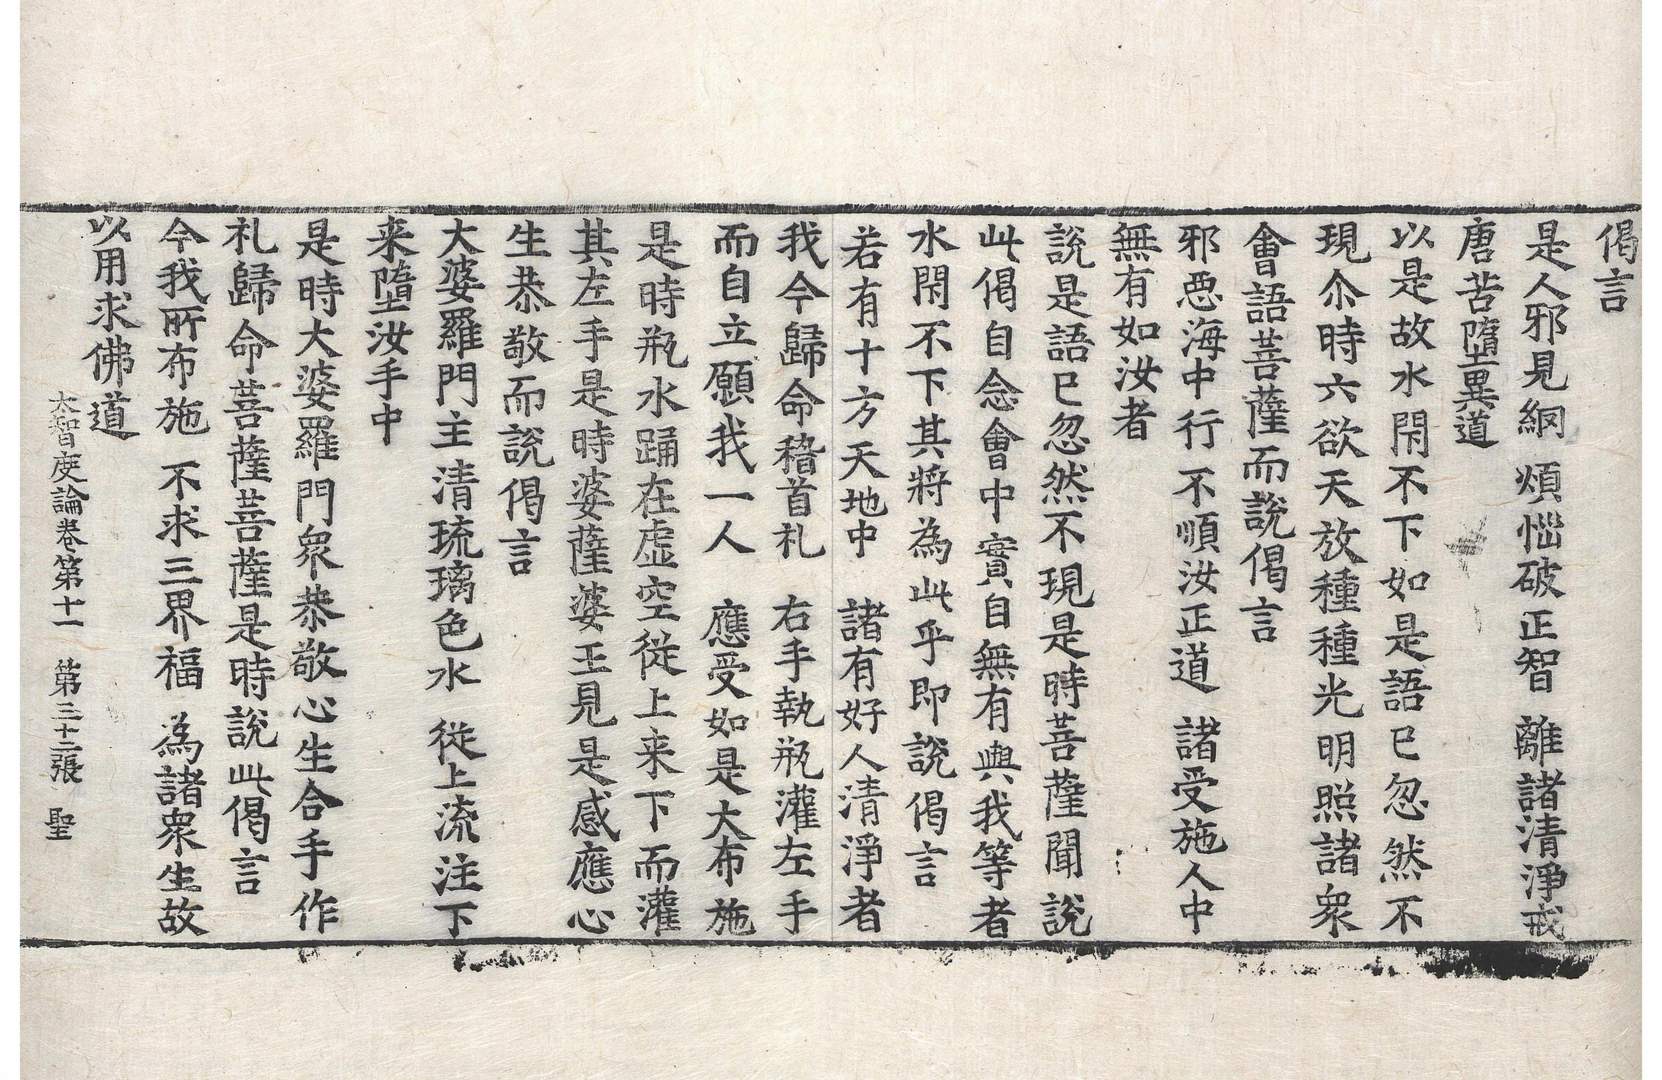 偈言
是人邪見網 煩惱破正智 離諸清淨戒
唐苦墮異道
以是故水閇不下如是語已忽然不
現尒時六欲天放種種光明照諸衆
會語菩薩而說偈言
邪惡海中行 不順汝正道 諸受施人中
無有如汝者
說是語已忽然不現是時菩薩聞說
此偈自念會中實自無有與我等者
水閇不下其將為此乎即說偈言
若有十方天地中 諸有好人清淨者
我今歸命稽首礼 右手執瓶灌左手
而自立願我一人 應受如是大布施
是時瓶水踊在虛空從上来下而灌
其左手是時婆薩婆王見是感應心
生恭敬而說偈言
大婆羅門主 清琉璃色水 從上流注下
来墮汝手中
是時大婆羅門衆恭敬心生合手作
礼歸命菩薩菩薩是時說此偈言
今我所布施 不求三界福 為諸衆生故
以用求佛道
大智度論卷第十一 第三十二張 聖